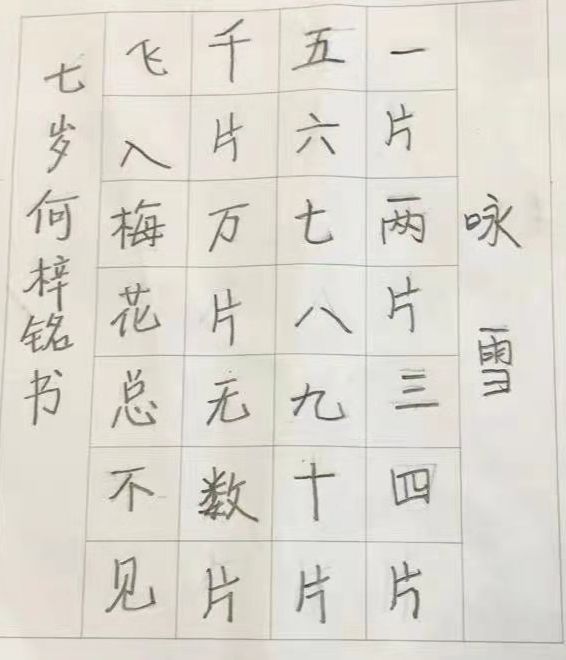 咏雪
一片两片三四片
五六七八九十片
千片万片无数片
飞入梅花总不见
七岁何梓铭书